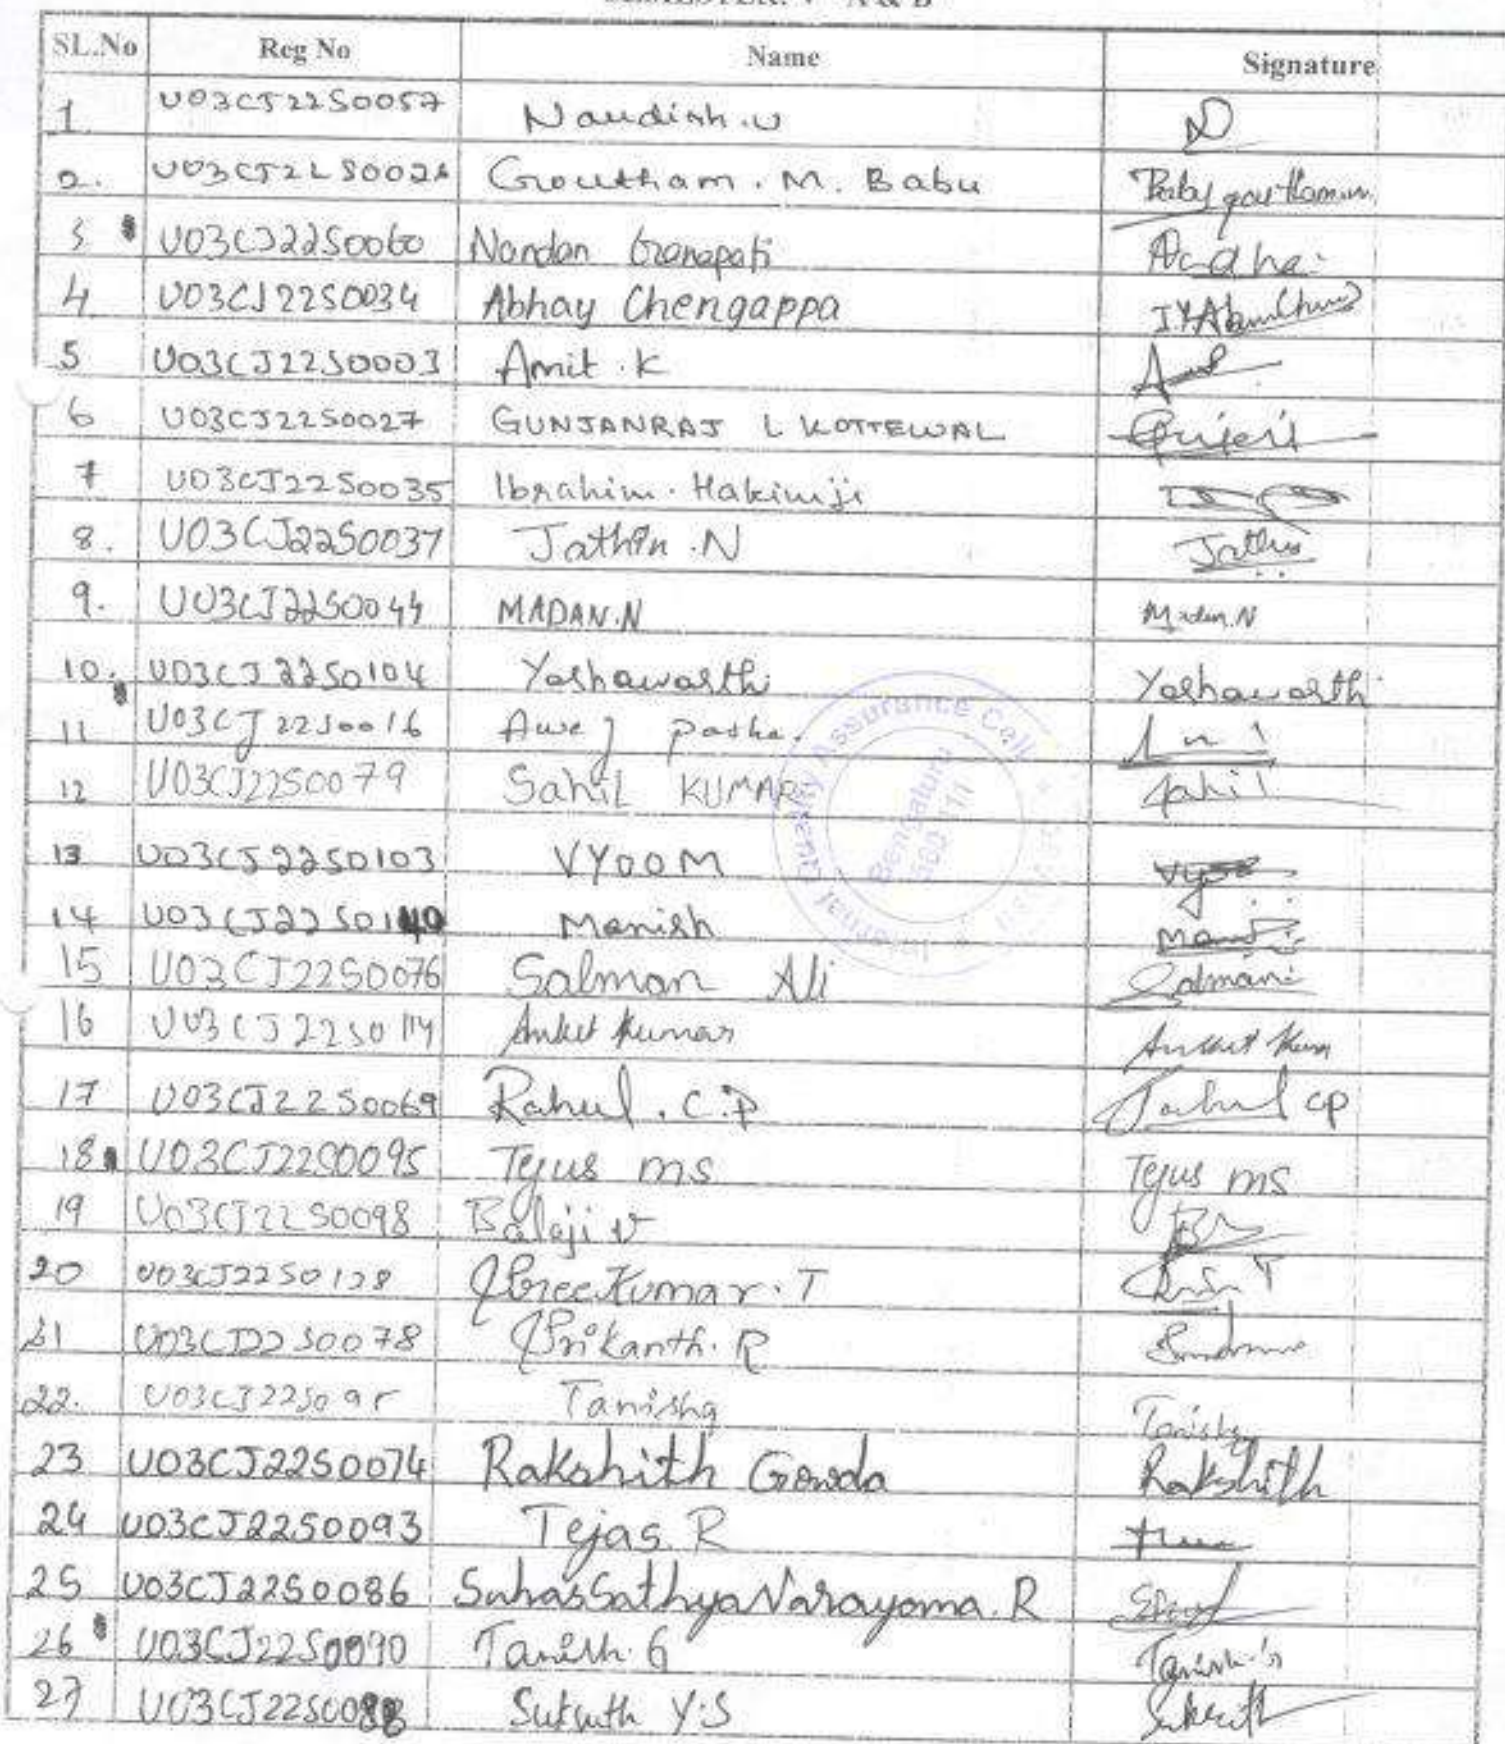 SL.No Reg No Name Signature
1 U03CJ22S0057 Nandish.U N
2. U03CJ22S0026 Goutham. M. Babu
3 U03CJ22S0060 Nandan Ganapati
4 U03CJ22S0034 Abhay Chengappa
5 U03CJ22S0003 Amit .K
6 U03CJ22S0027 GUNJANRAJ L KOTTEWAL
7 U03CJ22S0035 Ibrahim. Hakimji
8. U03CJ22S0037 Jathin .N Jathin
9. U03CJ22S0044 MADAN.N Madan.N
10. U03CJ22S0104 Yashawasth Yashawasth
11 U03CJ22S0016 Awez pasha.
12 U03CJ22S0079 Sahil KUMAR Sahil
13 U03CJ22S0103 VYOOM
14 U03CJ22S0140 Manish
15 U03CJ22S0076 Salman Ali Salman
16 U03CJ22S0114 Ankit Kumar Ankit Kum
17 U03CJ22S0069 Rahul . C.P Rahul CP
18 U03CJ22S0095 Tejus ms Tejus ms
19 U03CJ22S0098 Balaji V
20 U03CJ22S0128 Sree Kumar. T
21 U03CJ22S0078 Srikanth. R
22. U03CJ22S095 Tanisha Tanisha
23 U03CJ22S0074 Rakshith Gowda Rakshith
24 U03CJ22S0093 Tejas. R
25 U03CJ22S0086 Suhas SathyaNarayama. R
26 U03CJ22S0090 Tanish. G
27 U03CJ22S0088 Sukruth Y.S Sukruth
Internal Quality Assurance Cell
Bengaluru
560